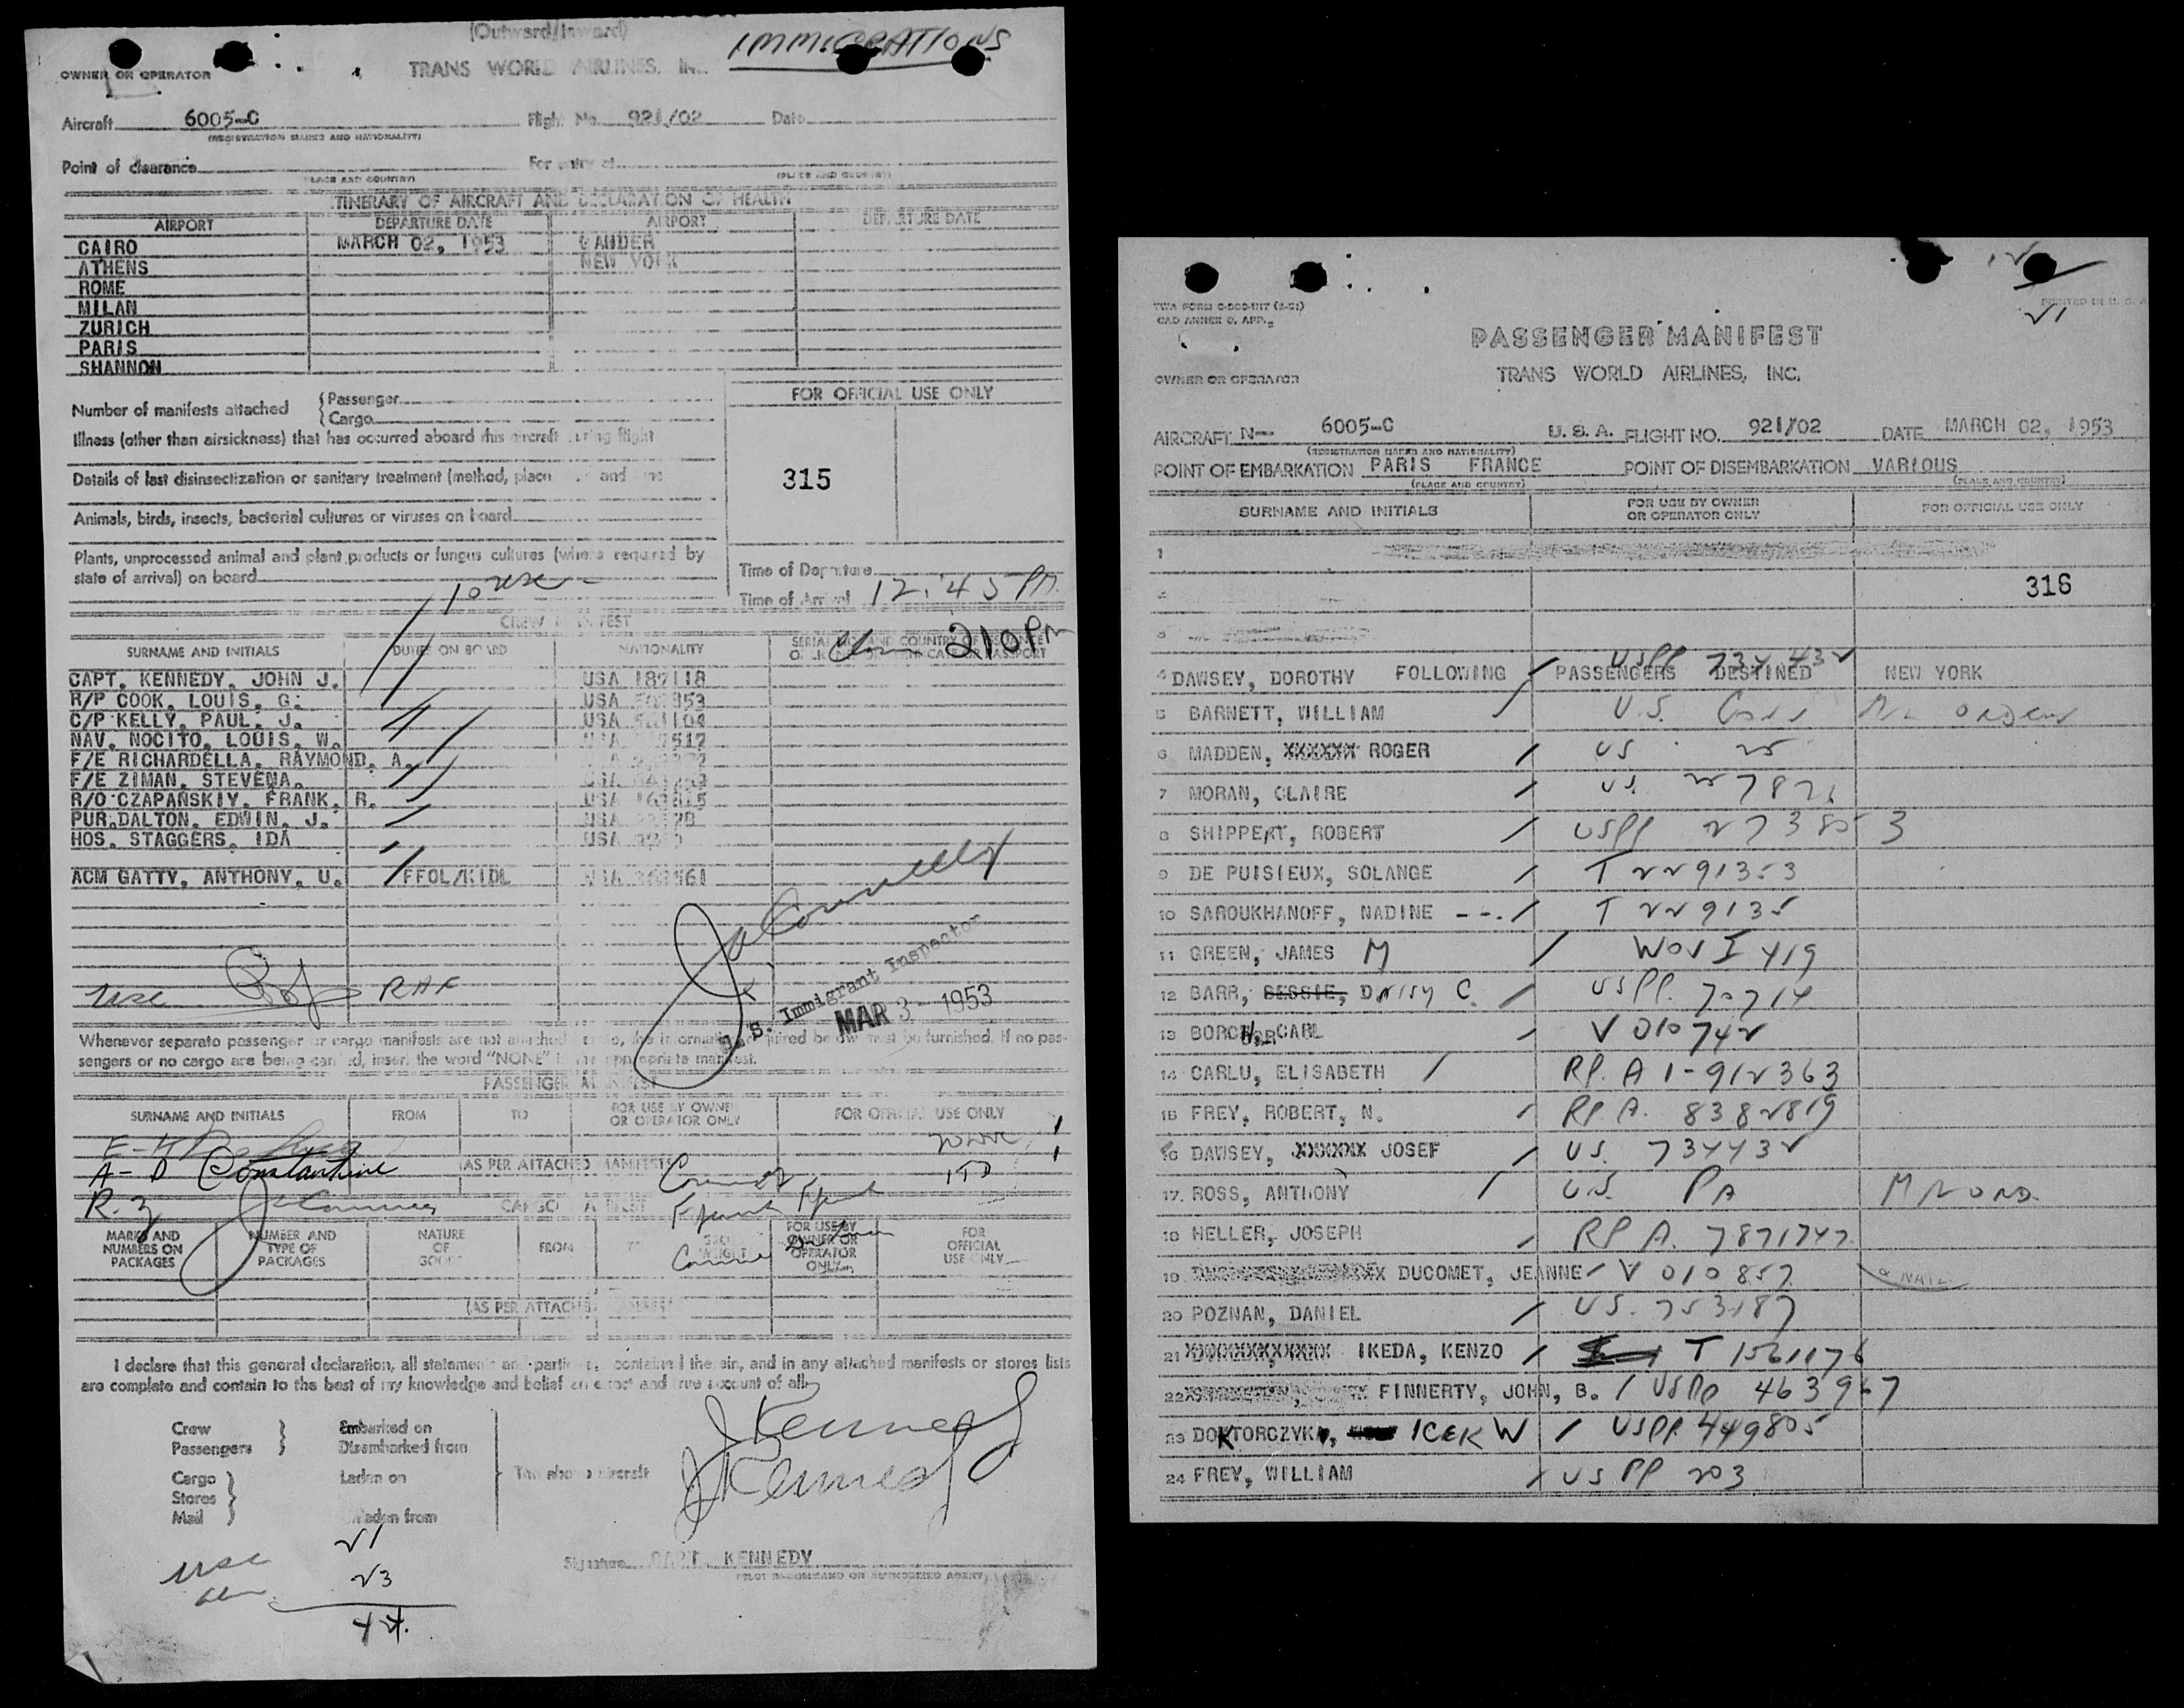 (Outward/Inward)
IMMIGRATIONS
OWNER OR OPERATOR
TRANS WORLD AIRLINES, INC.
Aircraft 6005-C Flight No. 921/02 Date
(REGISTRATION MARKS AND NATIONALITY)
Point of clearance For entry at
(PLACE AND COUNTRY) (PLACE AND COUNTRY)
ITINERARY OF AIRCRAFT AND DECLARATION OF HEALTH
AIRPORT DEPARTURE DATE AIRPORT DEPARTURE DATE
CAIRO MARCH 02, 1953 GANDER
ATHENS NEW YORK
ROME
MILAN
ZURICH
PARIS
SHANNON
Number of manifests attached { Passenger
Cargo
FOR OFFICIAL USE ONLY
Illness (other than airsickness) that has occurred aboard this aircraft during flight
315
Details of last disinsectization or sanitary treatment (method, place and
Animals, birds, insects, bacterial cultures or viruses on board
Plants, unprocessed animal and plant products or fungus cultures (where required by
state of arrival) on board
Time of Departure
Time of Arrival 12:45 PM
10 usc
CREW MANIFEST
210 PM
SURNAME AND INITIALS DUTIES ON BOARD NATIONALITY SERIAL NO. AND COUNTRY OF ISSUANCE
CAPT. KENNEDY, JOHN J. USA 187118
R/P COOK, LOUIS, G. USA
C/P KELLY, PAUL, J. USA
NAV. NOCITO, LOUIS, W.
F/E RICHARDELLA, RAYMOND, A.
F/E ZIMAN, STEVENA. USA
R/O CZAPANSKIY, FRANK, R. USA
PUR.DALTON, EDWIN, J. USA
HOS. STAGGERS, IDA USA
ACM GATTY, ANTHONY, U. FFOL/KIDL
usc
U. S. Immigrant Inspector
MAR 3 - 1953
Whenever separate passenger or cargo manifests are not attached hereto, the information required below must be furnished. If no pas-
sengers or no cargo are being carried, insert the word "NONE" in the appropriate manifest.
PASSENGER MANIFEST
SURNAME AND INITIALS FROM TO FOR USE BY OWNER OR OPERATOR ONLY FOR OFFICIAL USE ONLY
A-D Constantine
(AS PER ATTACHED MANIFESTS)
R-Z
CARGO MANIFEST
MARKS AND NUMBERS ON PACKAGES NUMBER AND TYPE OF PACKAGES NATURE OF GOODS FROM TO GROSS WEIGHT FOR USE BY OWNER OR OPERATOR ONLY FOR OFFICIAL USE ONLY
(AS PER ATTACHED MANIFEST)
I declare that this general declaration, all statements and particulars contained therein, and in any attached manifests or stores lists
are complete and contain to the best of my knowledge and belief an exact and true account of all
Crew } Embarked on
Passengers } Disembarked from
Cargo } Laden on
Stores
Mail } Unladen from
The above aircraft
J Kennedy
J Kennedy
Signature CAPT. KENNEDY
(PILOT IN COMMAND OR AUTHORIZED AGENT)
usc 21
23
44.
TWA FORM
CAD ANNEX D. APP.
PRINTED IN U. S. A
21
PASSENGER MANIFEST
OWNER OR OPERATOR
TRANS WORLD AIRLINES, INC.
AIRCRAFT N-- 6005-C U. S. A. FLIGHT NO. 921/02 DATE MARCH 02, 1953
(REGISTRATION MARKS AND NATIONALITY)
POINT OF EMBARKATION PARIS FRANCE POINT OF DISEMBARKATION VARIOUS
(PLACE AND COUNTRY) (PLACE AND COUNTRY)
SURNAME AND INITIALS FOR USE BY OWNER OR OPERATOR ONLY FOR OFFICIAL USE ONLY
1
2 316
3
4 DAWSEY, DOROTHY FOLLOWING PASSENGERS DESTINED NEW YORK
USPP 734432
5 BARNETT, WILLIAM U.S.
6 MADDEN, XXXXXX ROGER US 25
7 MORAN, CLAIRE US.
8 SHIPPERT, ROBERT USPP 273853
9 DE PUISIEUX, SOLANGE T 2291353
10 SAROUKHANOFF, NADINE ---. T 229135
11 GREEN, JAMES M WOV I 419
12 BARR, BESSIE, DAISY C. USPP. 70714
13 BORCH, CARL V 010742
14 CARLU, ELISABETH RP. A 1-912363
15 FREY, ROBERT, N. RP A. 8382819
16 DAWSEY, XXXXXX JOSEF US. 734432
17. ROSS, ANTHONY U.S. PA
18 HELLER, JOSEPH RP A. 7871747
19 DUCOMET, JEANNE V 010857
20 POZNAN, DANIEL US. 753187
21 XXXXXXXXXXXX IKEDA, KENZO T 1561176
22 FINNERTY, JOHN, B. USPP 463967
23 DOKTORCZYK, ICEK W USPP. 449805
24 FREY, WILLIAM US PP 203